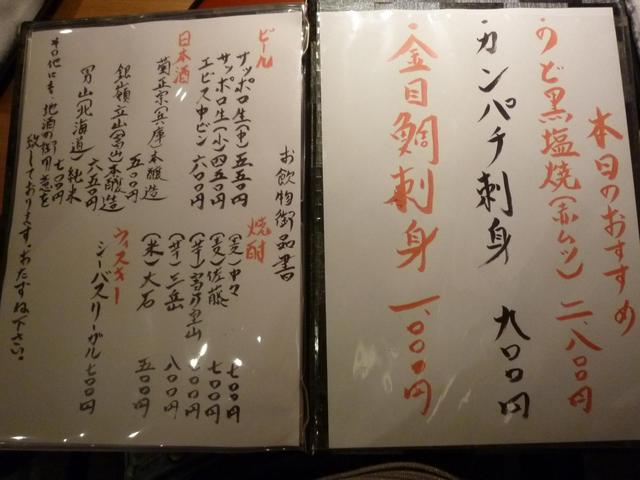 本日のおすすめ
・のど黒塩焼(赤ムツ) 二、八〇〇円
・カンパチ刺身 九〇〇円
・金目鯛刺身 一、〇〇〇円
お飲物御品書
ビール
サッポロ生(中) 五五〇円
サッポロ生(小) 四五〇円
エビス中ビン 六〇〇円
日本酒
菊正宗(兵庫)本醸造
五〇〇円
銀嶺立山(富山)本醸造
六五〇円
男山(北海道)純米
七〇〇円
その他にも 地酒の御用意を
致しております。おたずね下さい。
焼酎
(麦)中々 七〇〇円
(麦)佐藤 七〇〇円
(芋)富乃宝山 七〇〇円
(芋)三岳 八〇〇円
(米)大石 五〇〇円
ウィスキー
シーバスリーガル 七〇〇円